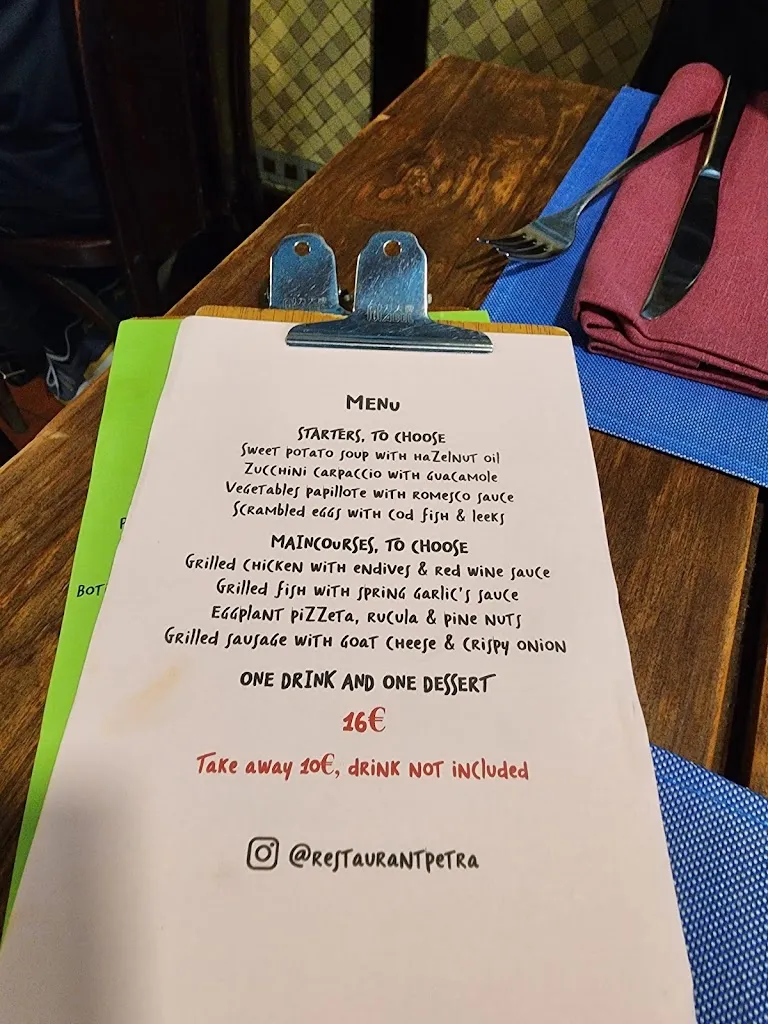 Menu
STARTERS, TO CHOOSE
Sweet potato soup with hazelnut oil
Zucchini carpaccio with guacamole
Vegetables papillote with romesco sauce
Scrambled eggs with cod fish & leeks
MAINCOURSES, TO CHOOSE
Grilled chicken with endives & red wine sauce
Grilled fish with spring garlic's sauce
Eggplant pizzeta, rucula & pine nuts
Grilled sausage with goat cheese & crispy onion
ONE DRINK AND ONE DESSERT
16€
Take away 10€, drink not included
@restaurantpetra
BOT